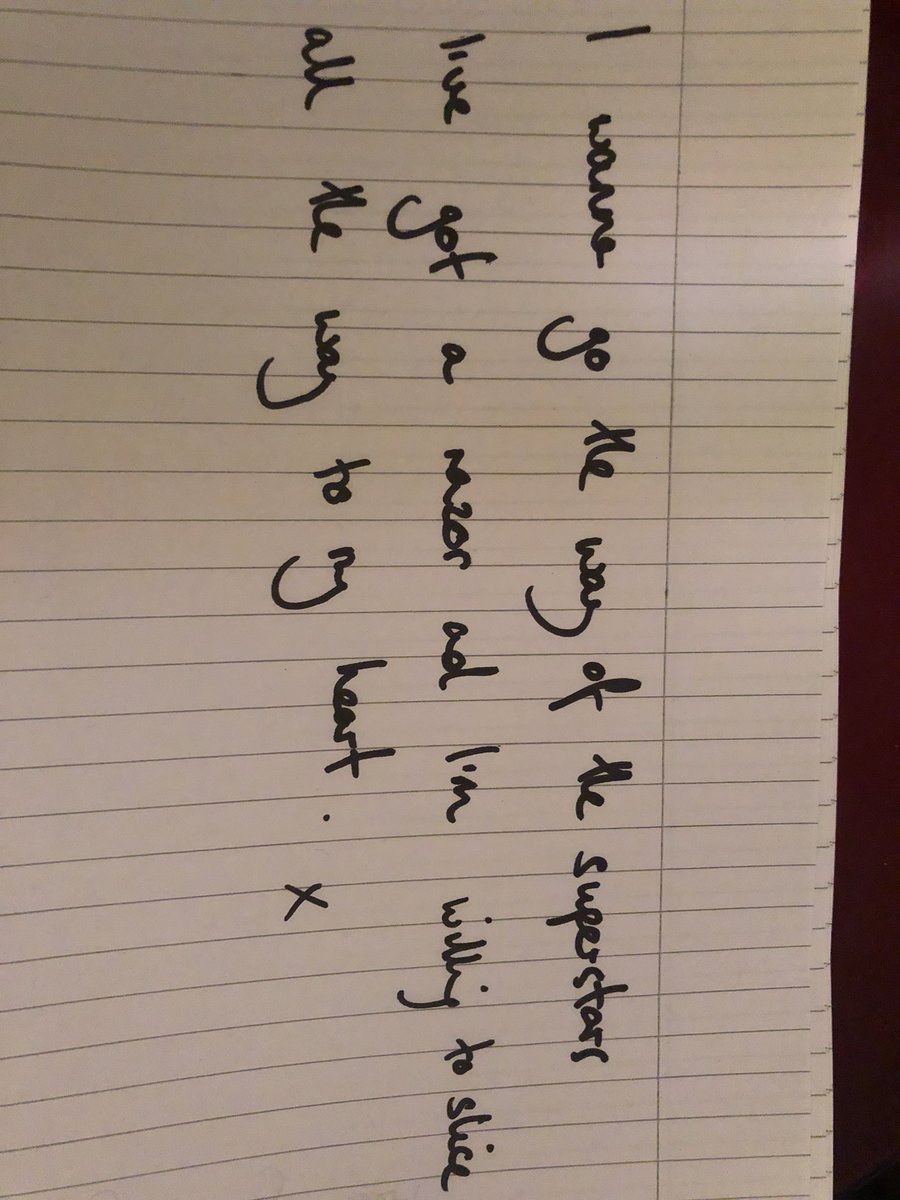 I wanna go the way of the superstars
I've got a razor ad I'm willing to slice
all the way to my heart. x